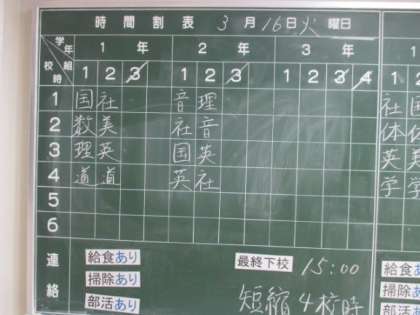 時間割表 3月16日火曜日
学年 組 校時
1年 2年 3年
1 2 3 1 2 3 1 2 3 4
1 国 社 音 理 社 国
2 数 美 社 音 体 体
3 理 英 国 英 英 英
4 道 道 英 社 学 学
5
6
連絡
給食あり 最終下校 15:00 給食あ
掃除あり 掃除あ
部活あり 短縮4校時 部活あ